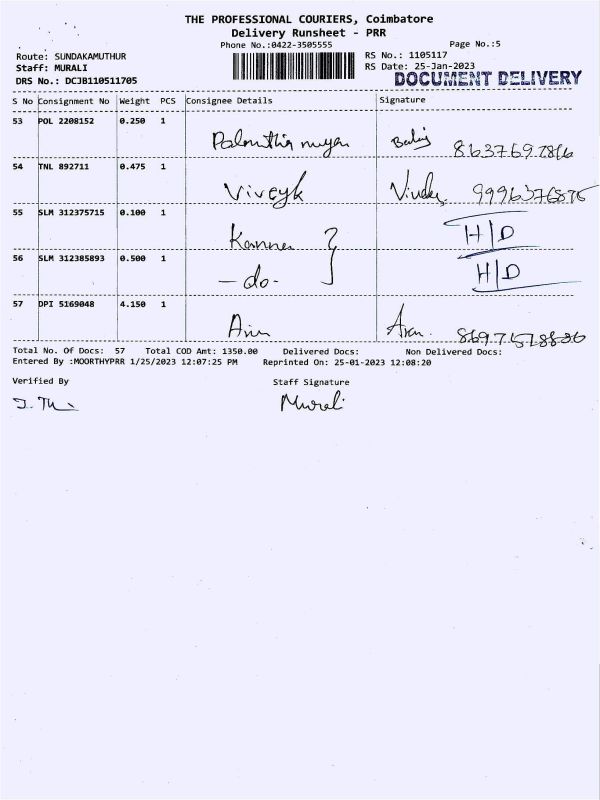 THE PROFESSIONAL COURIERS, Coimbatore
Delivery Runsheet - PRR
Phone No.:0422-3505555
Page No.:5
Route: SUNDAKAMUTHUR
RS No.: 1105117
Staff: MURALI
RS Date: 25-Jan-2023
DRS No.: DCJB110511705
DOCUMENT DELIVERY
S No Consignment No Weight PCS Consignee Details Signature
53 POL 2208152 0.250 1
54 TNL 892711 0.475 1
Viveyk
55 SLM 312375715 0.100 1
H/D
56 SLM 312385893 0.500 1
- do - H/D
57 DPI 5169048 4.150 1
Total No. Of Docs: 57 Total COD Amt: 1350.00 Delivered Docs: Non Delivered Docs:
Entered By :MOORTHYPRR 1/25/2023 12:07:25 PM Reprinted On: 25-01-2023 12:08:20
Verified By Staff Signature
Murali